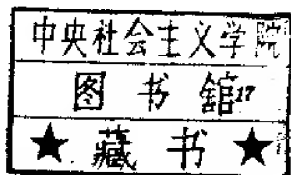 中央社会主义学院
图书舘17
★藏书★